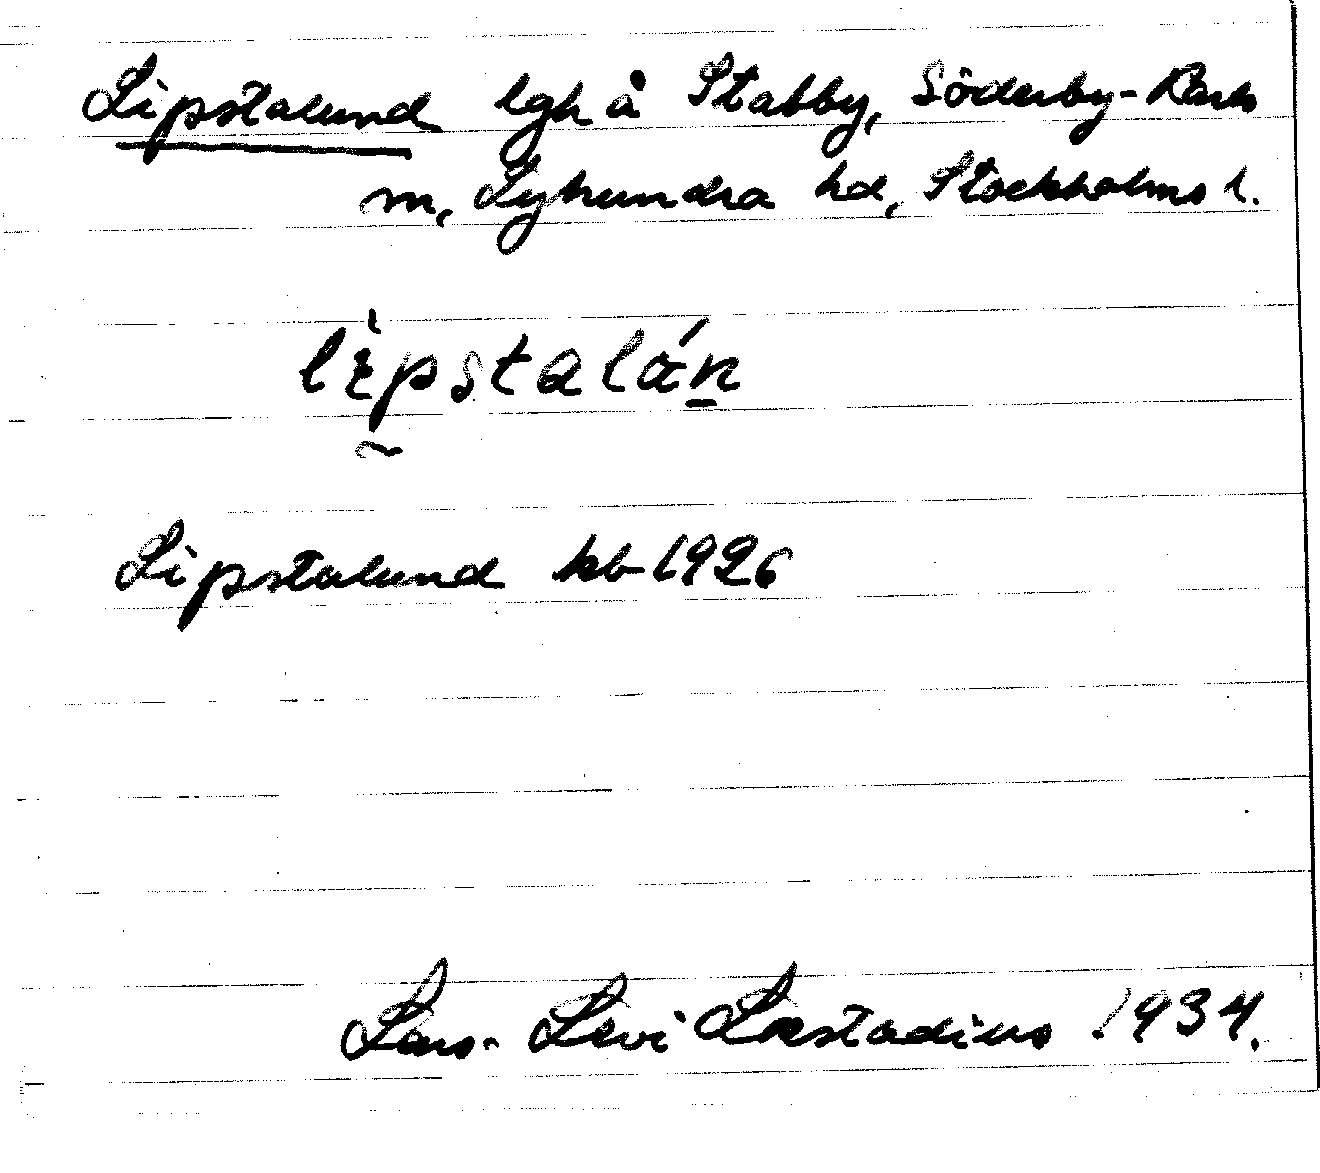 Lipstalund lgh å Stabby, Söderby-Karls
sn, Lyhundra hd, Stockholms l.
lɩ̀pstalán
Lipstalund kb 1926
Lars-Levi Læstadius 1934.